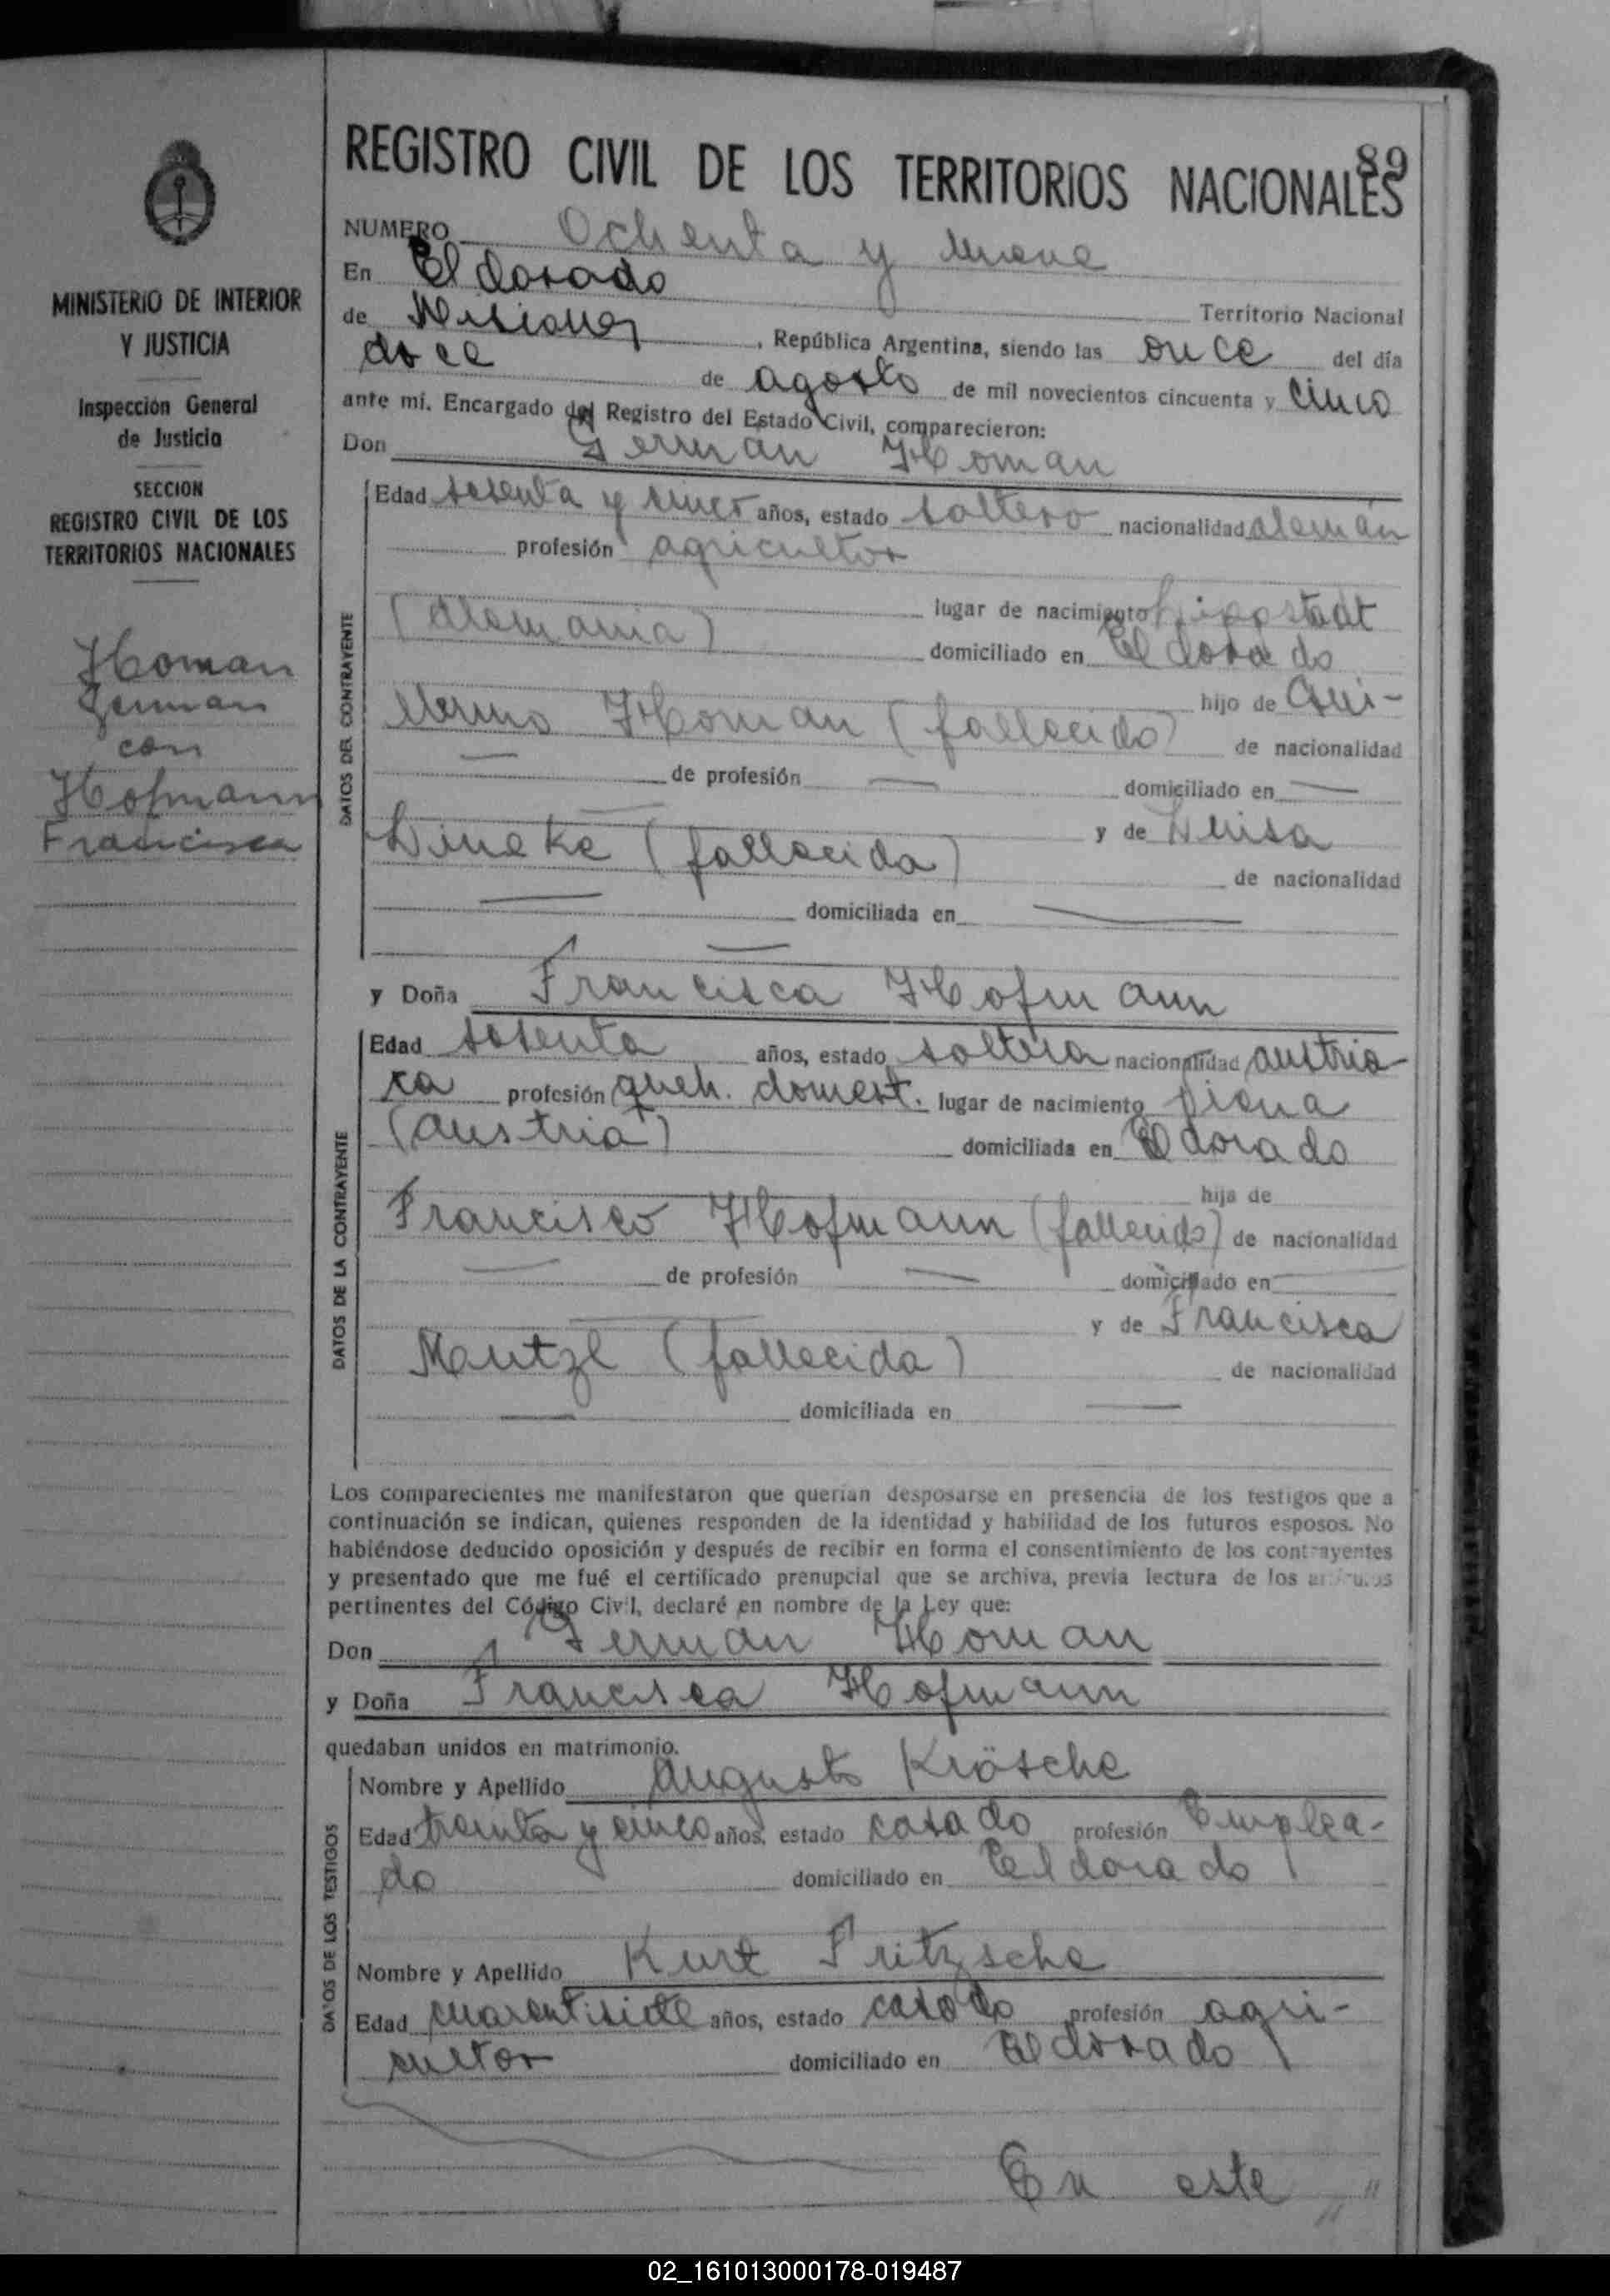 89
REGISTRO CIVIL DE LOS TERRITORIOS NACIONALES
MINISTERIO DE INTERIOR
Y JUSTICIA
Inspección General
de Justicia
SECCION
REGISTRO CIVIL DE LOS
TERRITORIOS NACIONALES
Homan
German
con
Hofmann
Francisca
NUMERO Ochenta y nueve
En Eldorado
Territorio Nacional
de Misiones, República Argentina, siendo las once del día
doce de agosto de mil novecientos cincuenta y cinco
ante mí. Encargado del Registro del Estado Civil, comparecieron:
Don Germán Homan
DATOS DEL CONTRAYENTE
Edad sesenta y cinco años, estado soltero nacionalidad alemán
profesión agricultor
lugar de nacimiento Lippstadt
(Alemania) domiciliado en Eldorado
hijo de Gui-
llermo Homan (fallecido) de nacionalidad
— de profesión — domiciliado en —
— y de Luisa
Lineke (fallecida) de nacionalidad
— domiciliada en —
—
y Doña Francisca Hofmann
DATOS DE LA CONTRAYENTE
Edad sesenta años, estado soltera nacionalidad austria-
ca profesión queh. domest. lugar de nacimiento Viena
(Austria) domiciliada en Eldorado
hija de
Francisco Hofmann (fallecido) de nacionalidad
— de profesión — domiciliado en —
— y de Francisca
Mentzl (fallecida) de nacionalidad
— domiciliada en —
Los comparecientes me manifestaron que querían desposarse en presencia de los testigos que a
continuación se indican, quienes responden de la identidad y habilidad de los futuros esposos. No
habiéndose deducido oposición y después de recibir en forma el consentimiento de los contrayentes
y presentado que me fué el certificado prenupcial que se archiva, previa lectura de los artículos
pertinentes del Código Civil, declaré en nombre de la Ley que:
Don German Homan
y Doña Francisca Hofmann
quedaban unidos en matrimonio.
DATOS DE LOS TESTIGOS
Nombre y Apellido Augusto Krösche
Edad treinta y cinco años, estado casado profesión Emplea-
do domiciliado en Eldorado
Nombre y Apellido Kurt Fritzsche
Edad cuarentisiete años, estado casado profesión agri-
cultor domiciliado en Eldorado
En este //
//
02_161013000178-019487